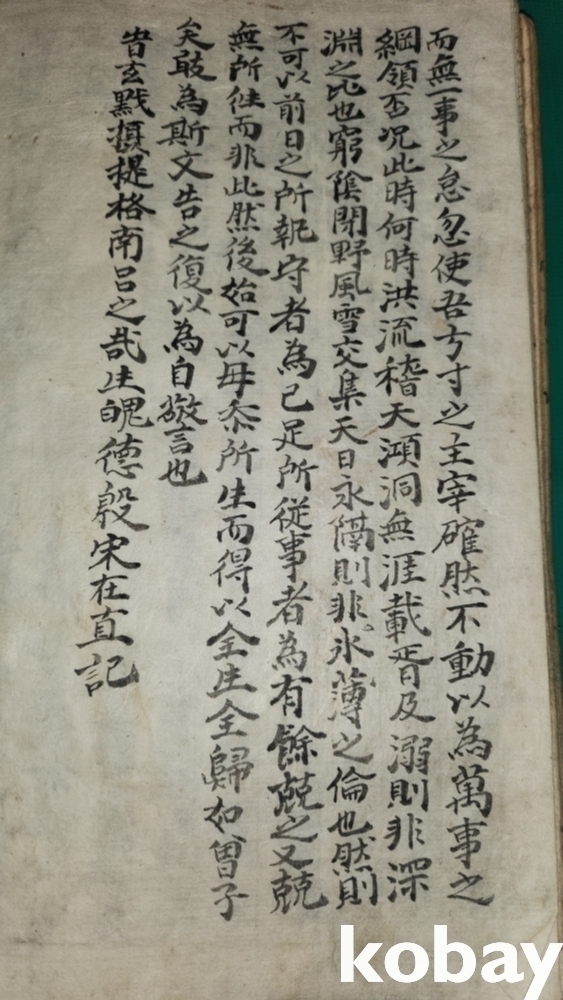 而無一事之怠忽使吾方寸之主宰確然不動以為萬事之
綱領否况此時何時洪流稽天澒洞無涯載胥及溺則非深
淵之比也窮陰閉野風雪交集天日永隔則非氷薄之倫也然則
不可以前日之所執守者為已足所従事者為有餘兢之又兢
無所徃而非此然後始可以毋忝所生而得以全生全歸如曾子
矣敢為斯文告之復以為自警言也
旹玄黓攝提格南呂之哉生魄德殷宋在直記
kobay